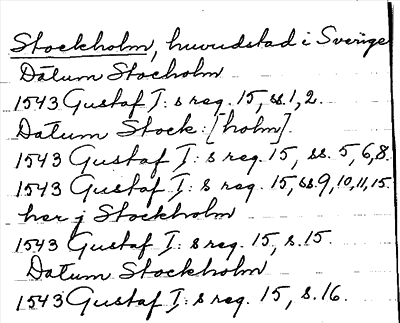 Stockholm, huvudstad i Sverige
Datum Stocholm
1543 Gustaf I:s reg. 15, ss. 1, 2.
Datum Stock: [holm].
1543 Gustaf I:s reg. 15, ss. 5, 6, 8.
1543 Gustaf I:s reg. 15, ss. 9, 10, 11, 15.
her j Stockholm
1543 Gustaf I:s reg. 15, s. 15.
Datum Stockholm
1543 Gustaf I:s reg. 15, s. 16.